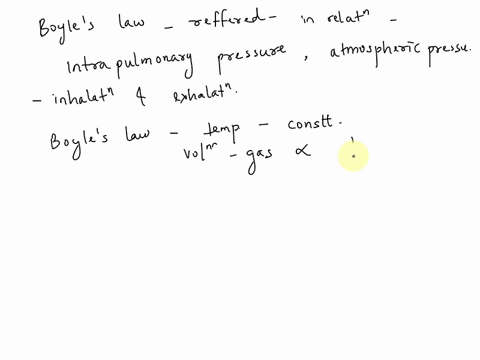 Boyle's law - reffered - in relatⁿ -
intrapulmonary pressure, atmospheric pressu.
- inhalatⁿ & exhalatⁿ.
Boyle's law - temp - constt.
volᵐ - gas ∝